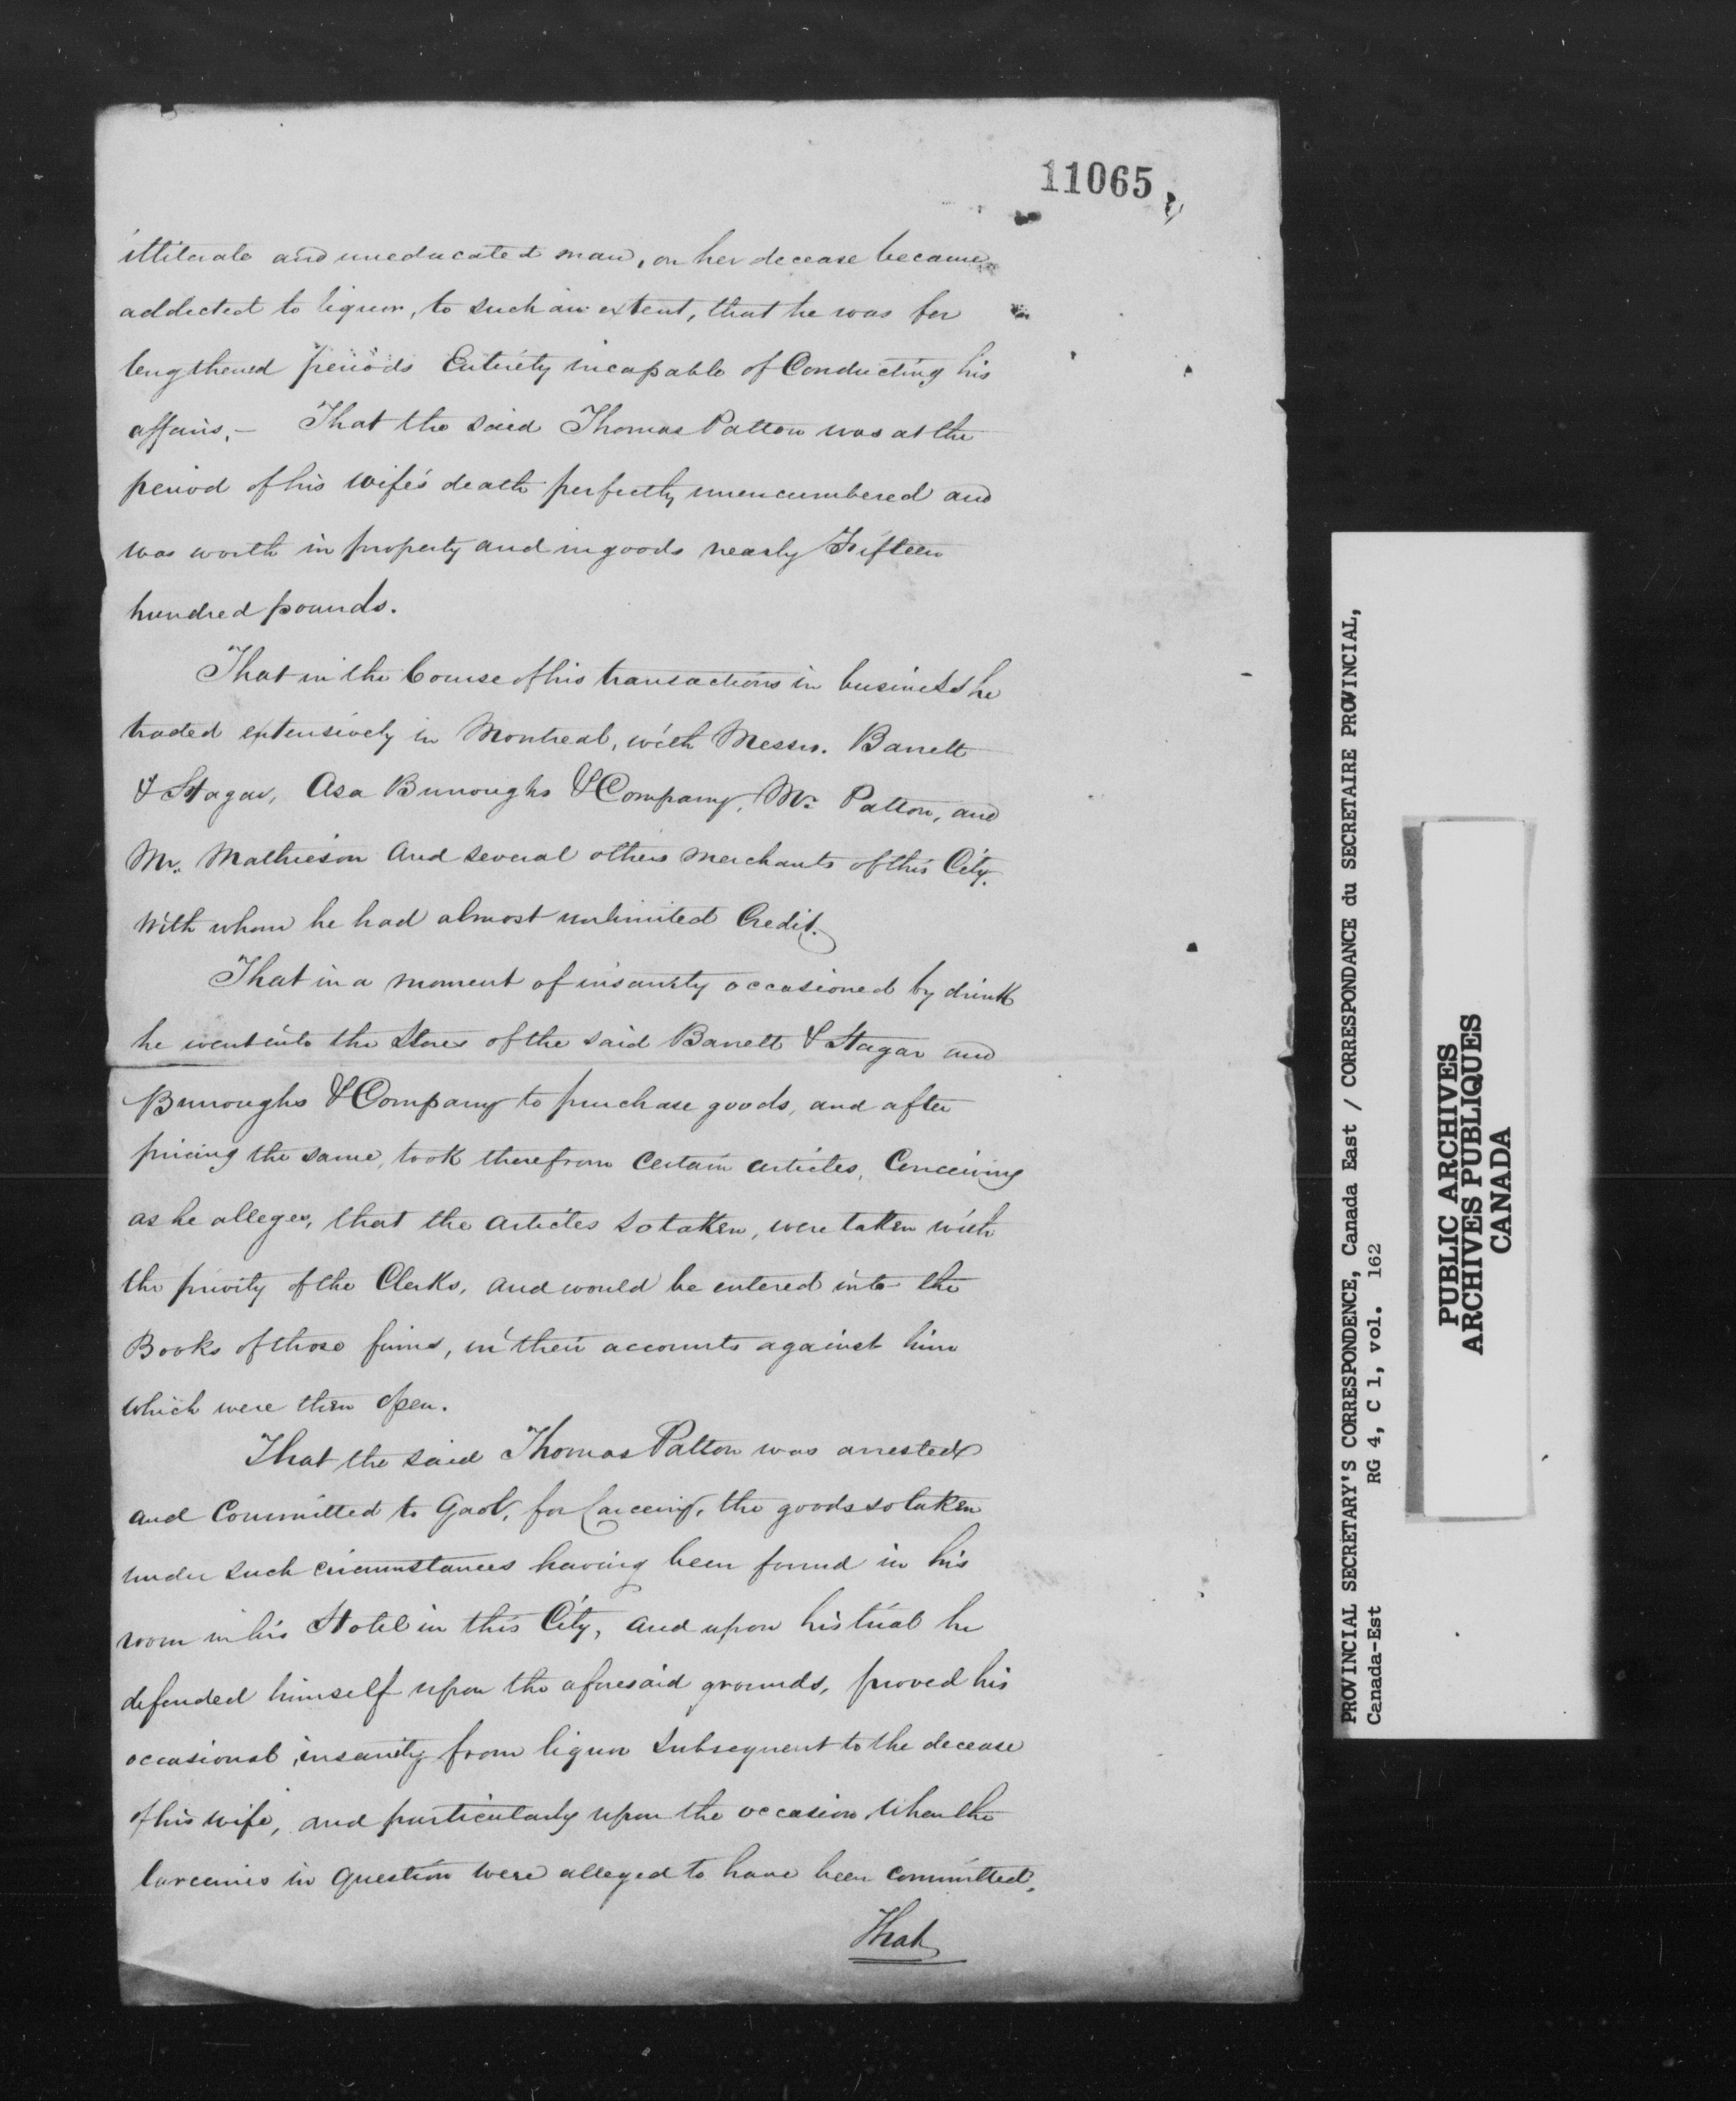 11065
illiterate and uneducated man, on her decease became
addicted to liquor, to such an extent, that he was for
lengthened periods Entirely incapable of Conducting his
affairs. — That the said Thomas Patton was at the
period of his wife's death perfectly unencumbered and
was worth in property and in goods nearly Fifteen
hundred pounds.
That in the Course of his transactions in business he
traded extensively in Montreal, with Messrs. Barrett
& Hagar, Asa Burroughs & Company, Mr. Patton, and
Mr. Mathieson and several others merchants of this City.
With whom he had almost unlimited Credit.
That in a moment of insanity occasioned by drink
he went into the Stores of the said Barrett & Hagar and
Burroughs & Company to purchase goods, and after
pricing the same, took therefrom Certain articles, Conceiving
as he alleges, that the articles so taken, were taken with
the privity of the Clerks, and would be entered into the
Books of those firms, in their accounts against him
which were then open.
That the said Thomas Patton was arrested
and Committed to Gaol, for Larceny, the goods so taken
under such circumstances having been found in his
room in his Hotel in this City, and upon his trial he
defended himself upon the aforesaid grounds, proved his
occasional insanity from liquor subsequent to the decease
of his wife, and particularly upon the occasion when the
larcenies in question were alleged to have been committed.
That
PROVINCIAL SECRETARY'S CORRESPONDENCE, Canada East / CORRESPONDANCE du SECRETAIRE PROVINCIAL,
Canada-Est RG 4, C 1, vol. 162
PUBLIC ARCHIVES
ARCHIVES PUBLIQUES
CANADA